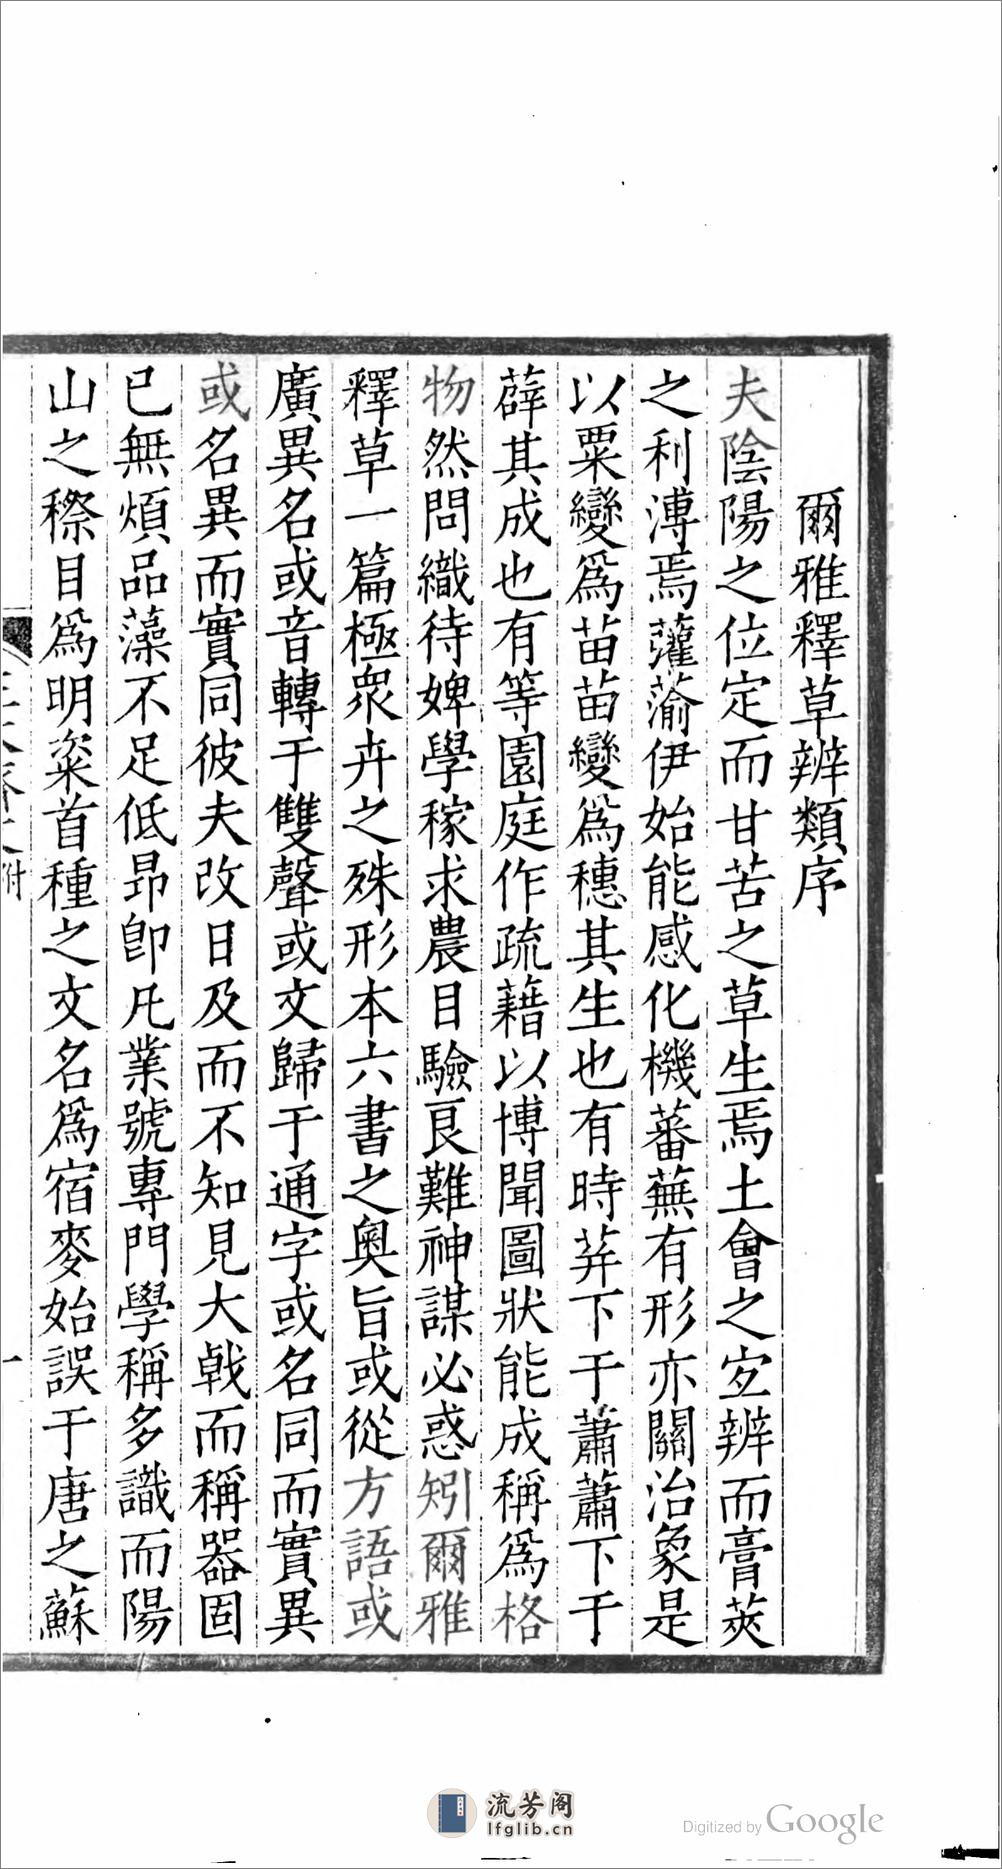 爾雅釋草辨類序
夫陰陽之位定而甘苦之草生焉土會之宐辨而膏莢
之利溥焉虇蕍伊始能感化機蕃蕪有形亦關治象是
以粟變爲苗苗變爲穗其生也有時莽下于蕭蕭下于
薜其成也有等園庭作疏藉以博聞圖狀能成稱爲格
物然問織待婢學稼求農目驗良難神謀必惑矧爾雅
釋草一篇極眾卉之殊形本六書之奧旨或從方語或
廣異名或音轉于雙聲或文歸于通字或名同而實異
或名異而實同彼夫攺日及而不知見大戟而稱器固
已無煩品藻不足低昻卽凡業號專門學稱多識而陽
山之穄目爲明粢首種之文名爲宿麥始誤于唐之蘇
附
一
流芳阁
lfglib.cn
Digitized by Google